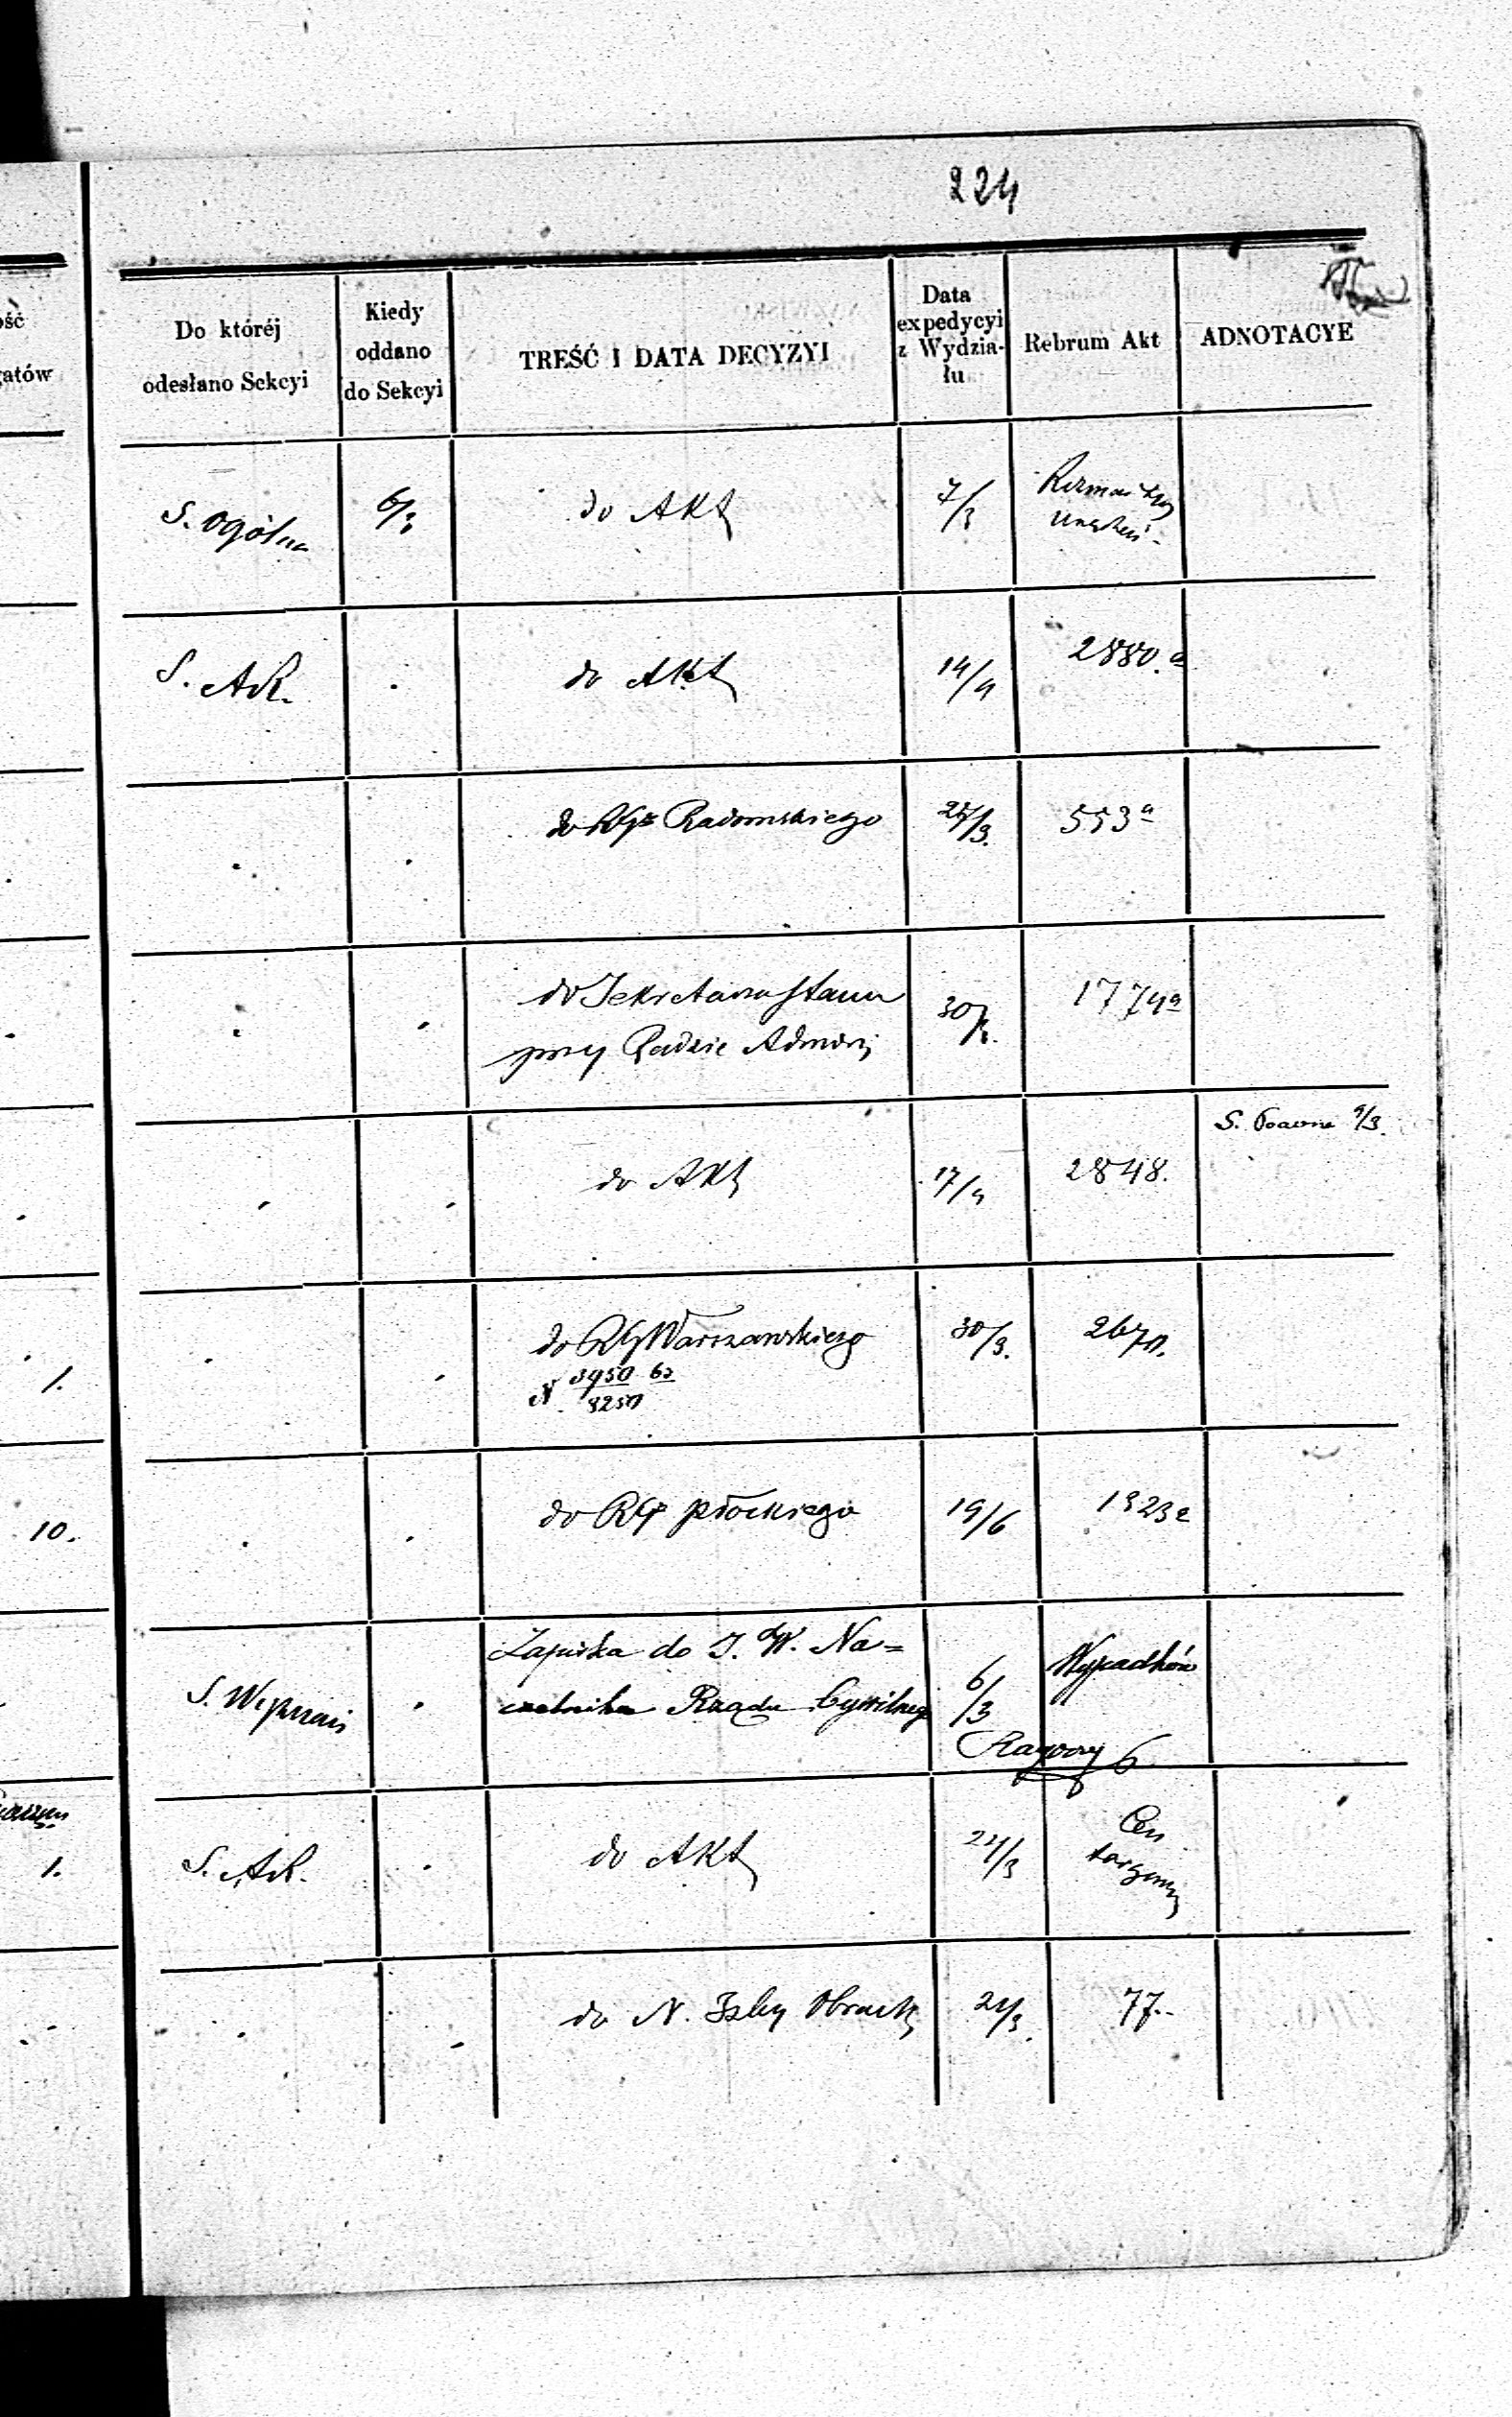 224
ość
gatów
Do któréj
odesłano Sekcyi
Kiedy
oddano
do Sekcyi
TREŚĆ I DATA DECYZYI
Data
expedycyi
z Wydzia-
łu
Rebrum Akt
ADNOTACYE
S. Ogólna 6/3 do Akt 7/3
S. AR. do Akt 14/4 2880. a
do RGo Radomskiego 553 a
do Sekretarza Stanu
przy Radzie Admnej 30/3. 1774 a
S. Prawna 9/3.
do Akt 17/4 2848.
1. do RG Warszawskiego 30/3.
N 3950 62
8250
10. do RGo Płockiego 19/6 1323 a
Zapiska do J. W. Na=
czelnika Rządu Cywilnego 6/3 Wypadków
S. Wyznań
Raporty 6
1. S. AR. do Akt 21/3 Cen
targowych
do N. Izby Obrach 21/3. 77.